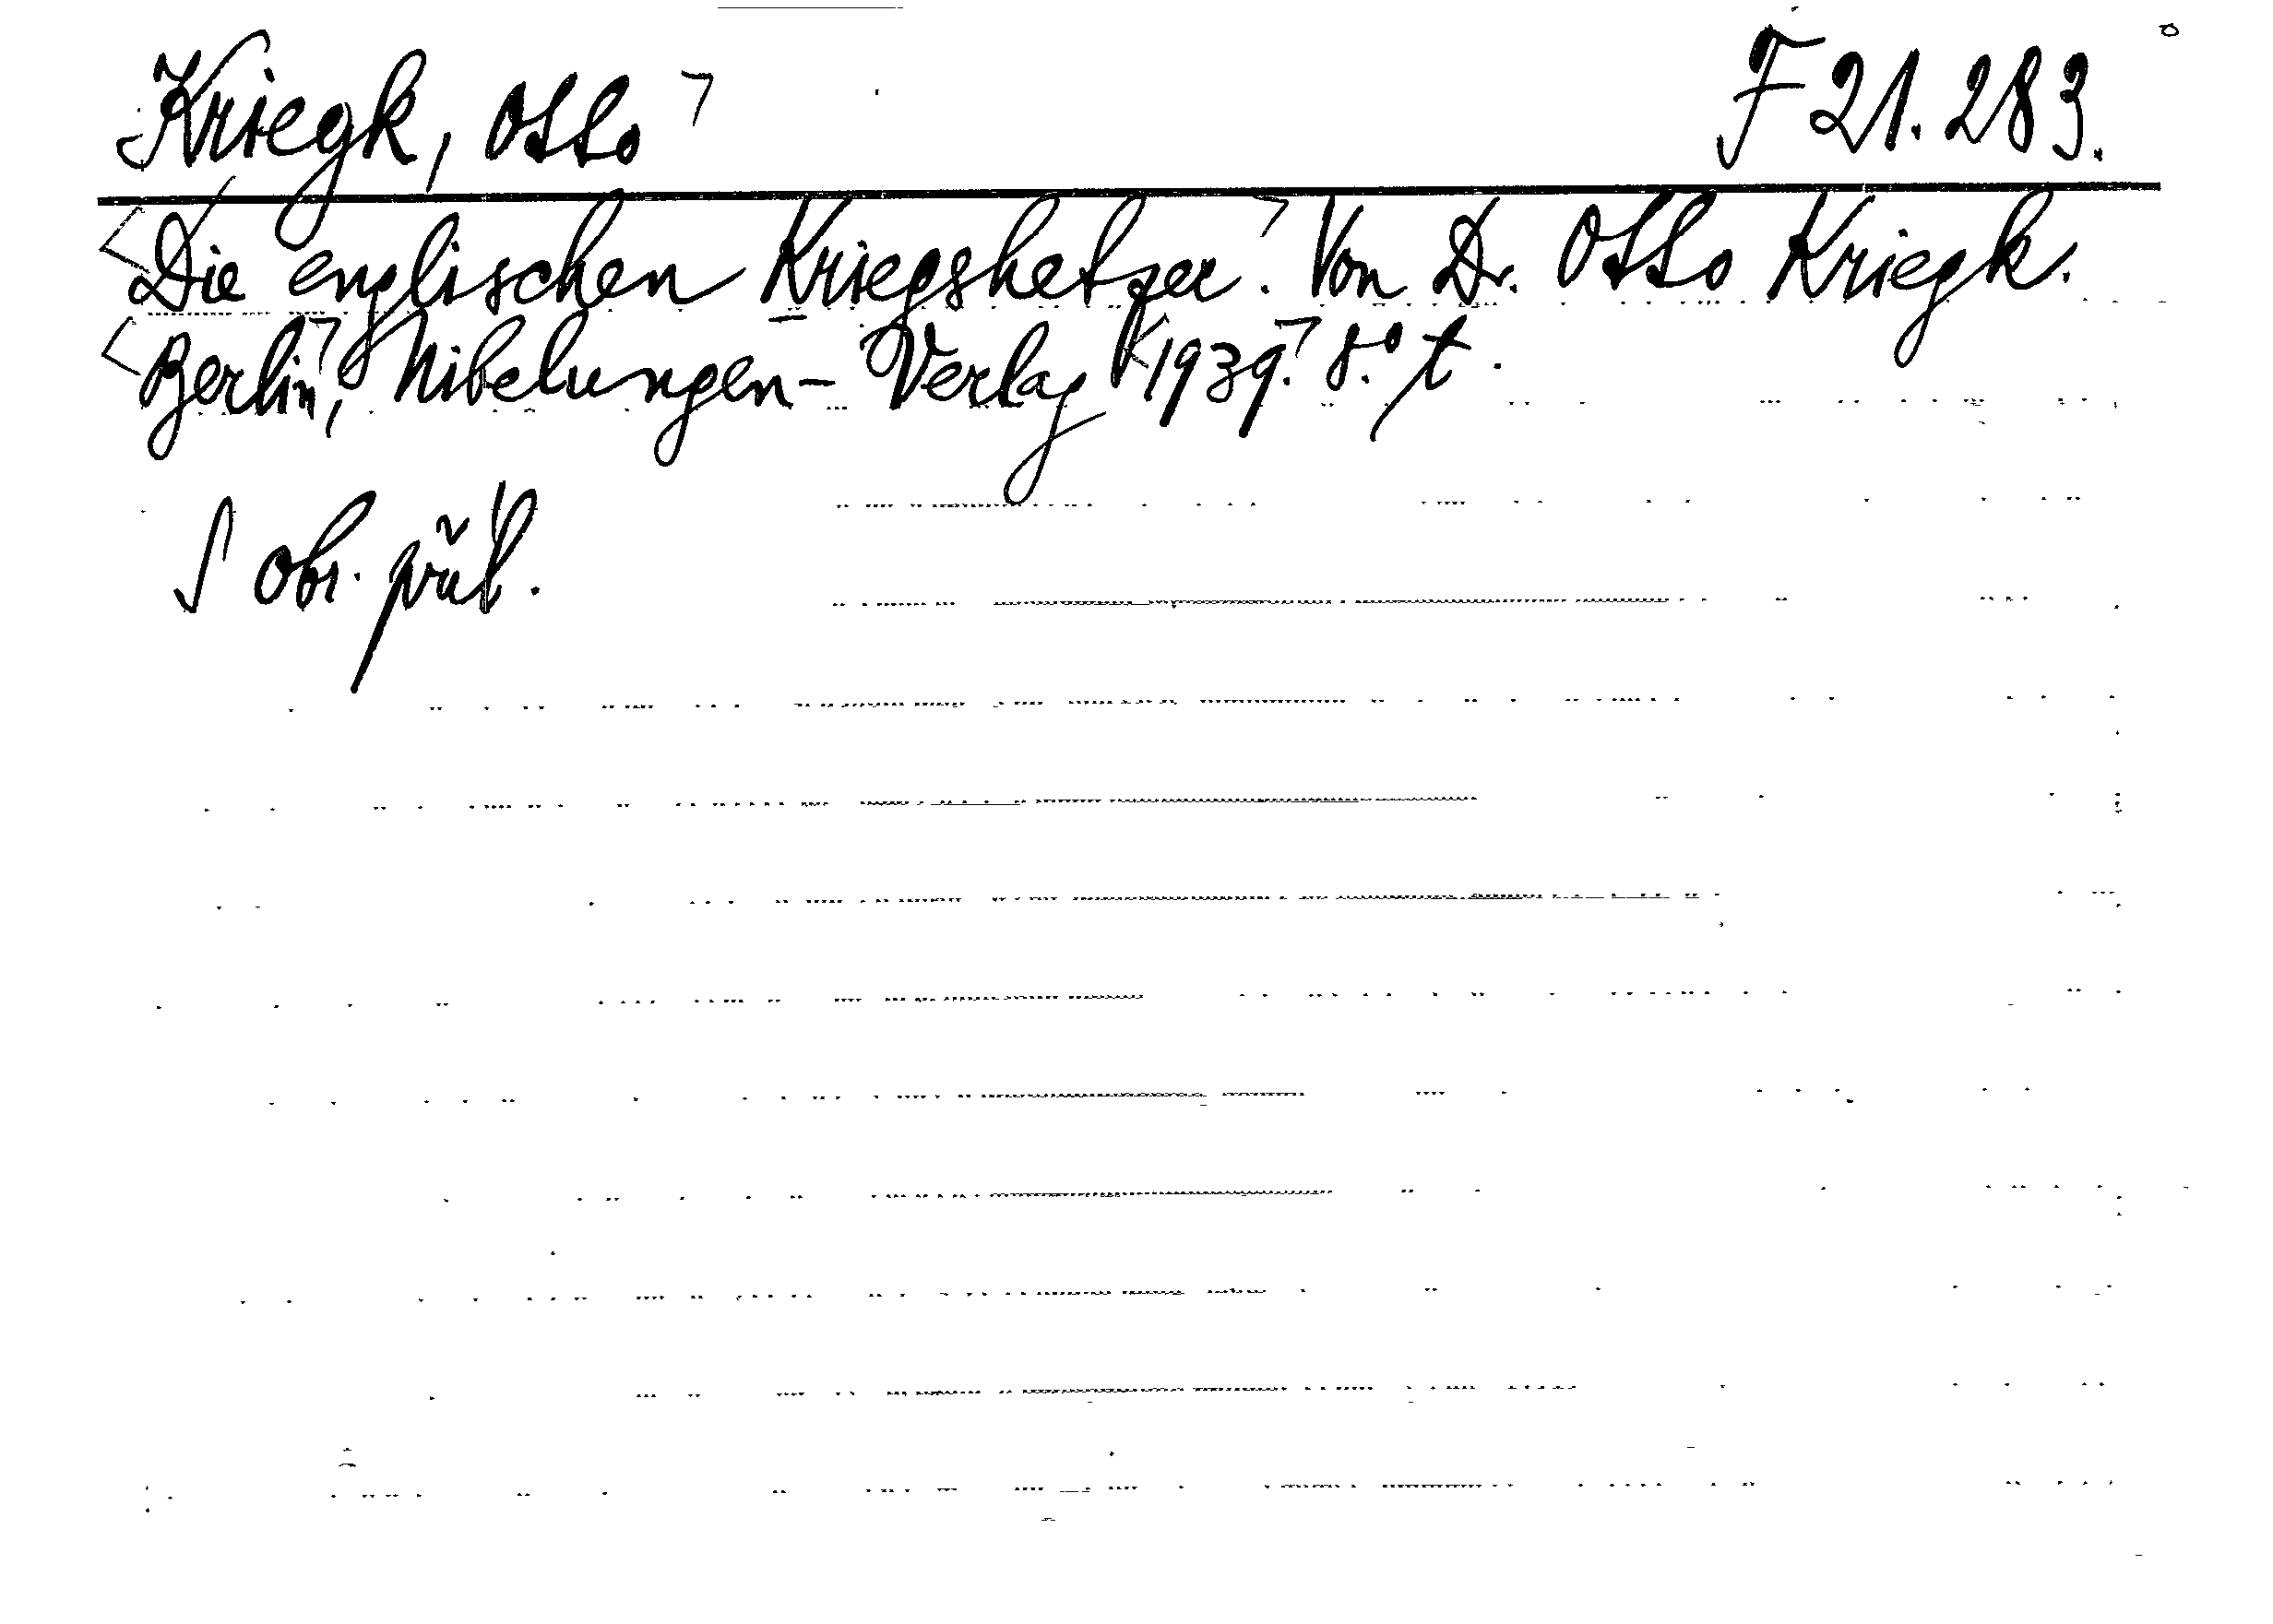 Kriegk, Otto F 21.283.
Die englischen Kriegshetzer. Von Dr. Otto Kriegk.
Berlin, Nibelungen-Verlag 1939. 8.° t.
S obr. příl.